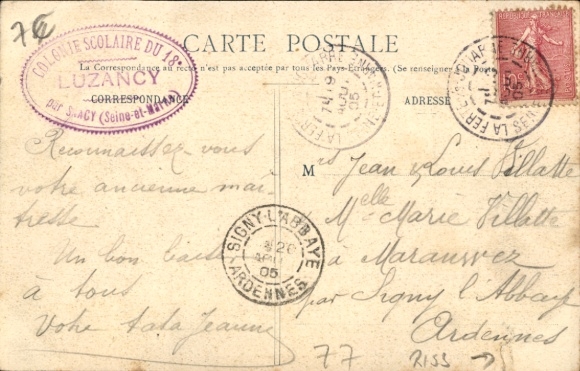 7€
COLONIE SCOLAIRE DU 18e
LUZANCY
par SAACY (Seine-et-Marne)
CARTE POSTALE
La Correspondance au recto n'est pas acceptée par tous les Pays Étrangers. (Se renseigner à la Poste)
CORRESPONDANCE
ADRESSE
RÉPUBLIQUE FRANÇAISE
LA FERTÉ-SOUS-JOUARRE
AOUT
05
LA FERTÉ-SOUS-JOUARRE
SEINE
05
Reconnaissez-vous
votre ancienne maî-
tresse
Un bon baiser
à tous
Votre tata Jeanne
Mrs Jean & Louis Villatte
Melle Marie Villatte
à Maranwez
par Signy l'Abbaye
Ardennes
SIGNY-L'ABBAYE
20
AOUT
05
ARDENNES
77